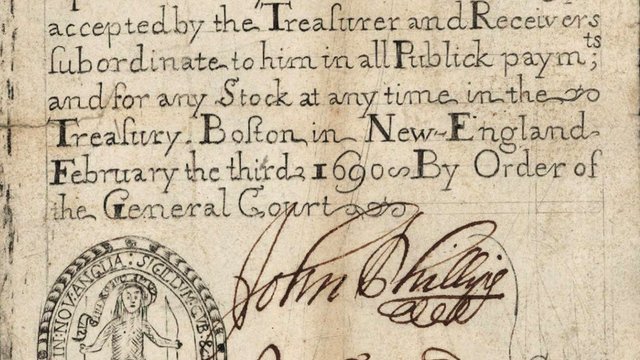 accepted by the Treaſurer and Receivers
ſubordinate to him in all Publick paymts;
and for any Stock at any time in the
Treaſury. Boſton in New-England
February the third 1690 By Order of
the General Court
IN:NOV:ANGLIA: SIGILLVM: GVB: &
John Phillips